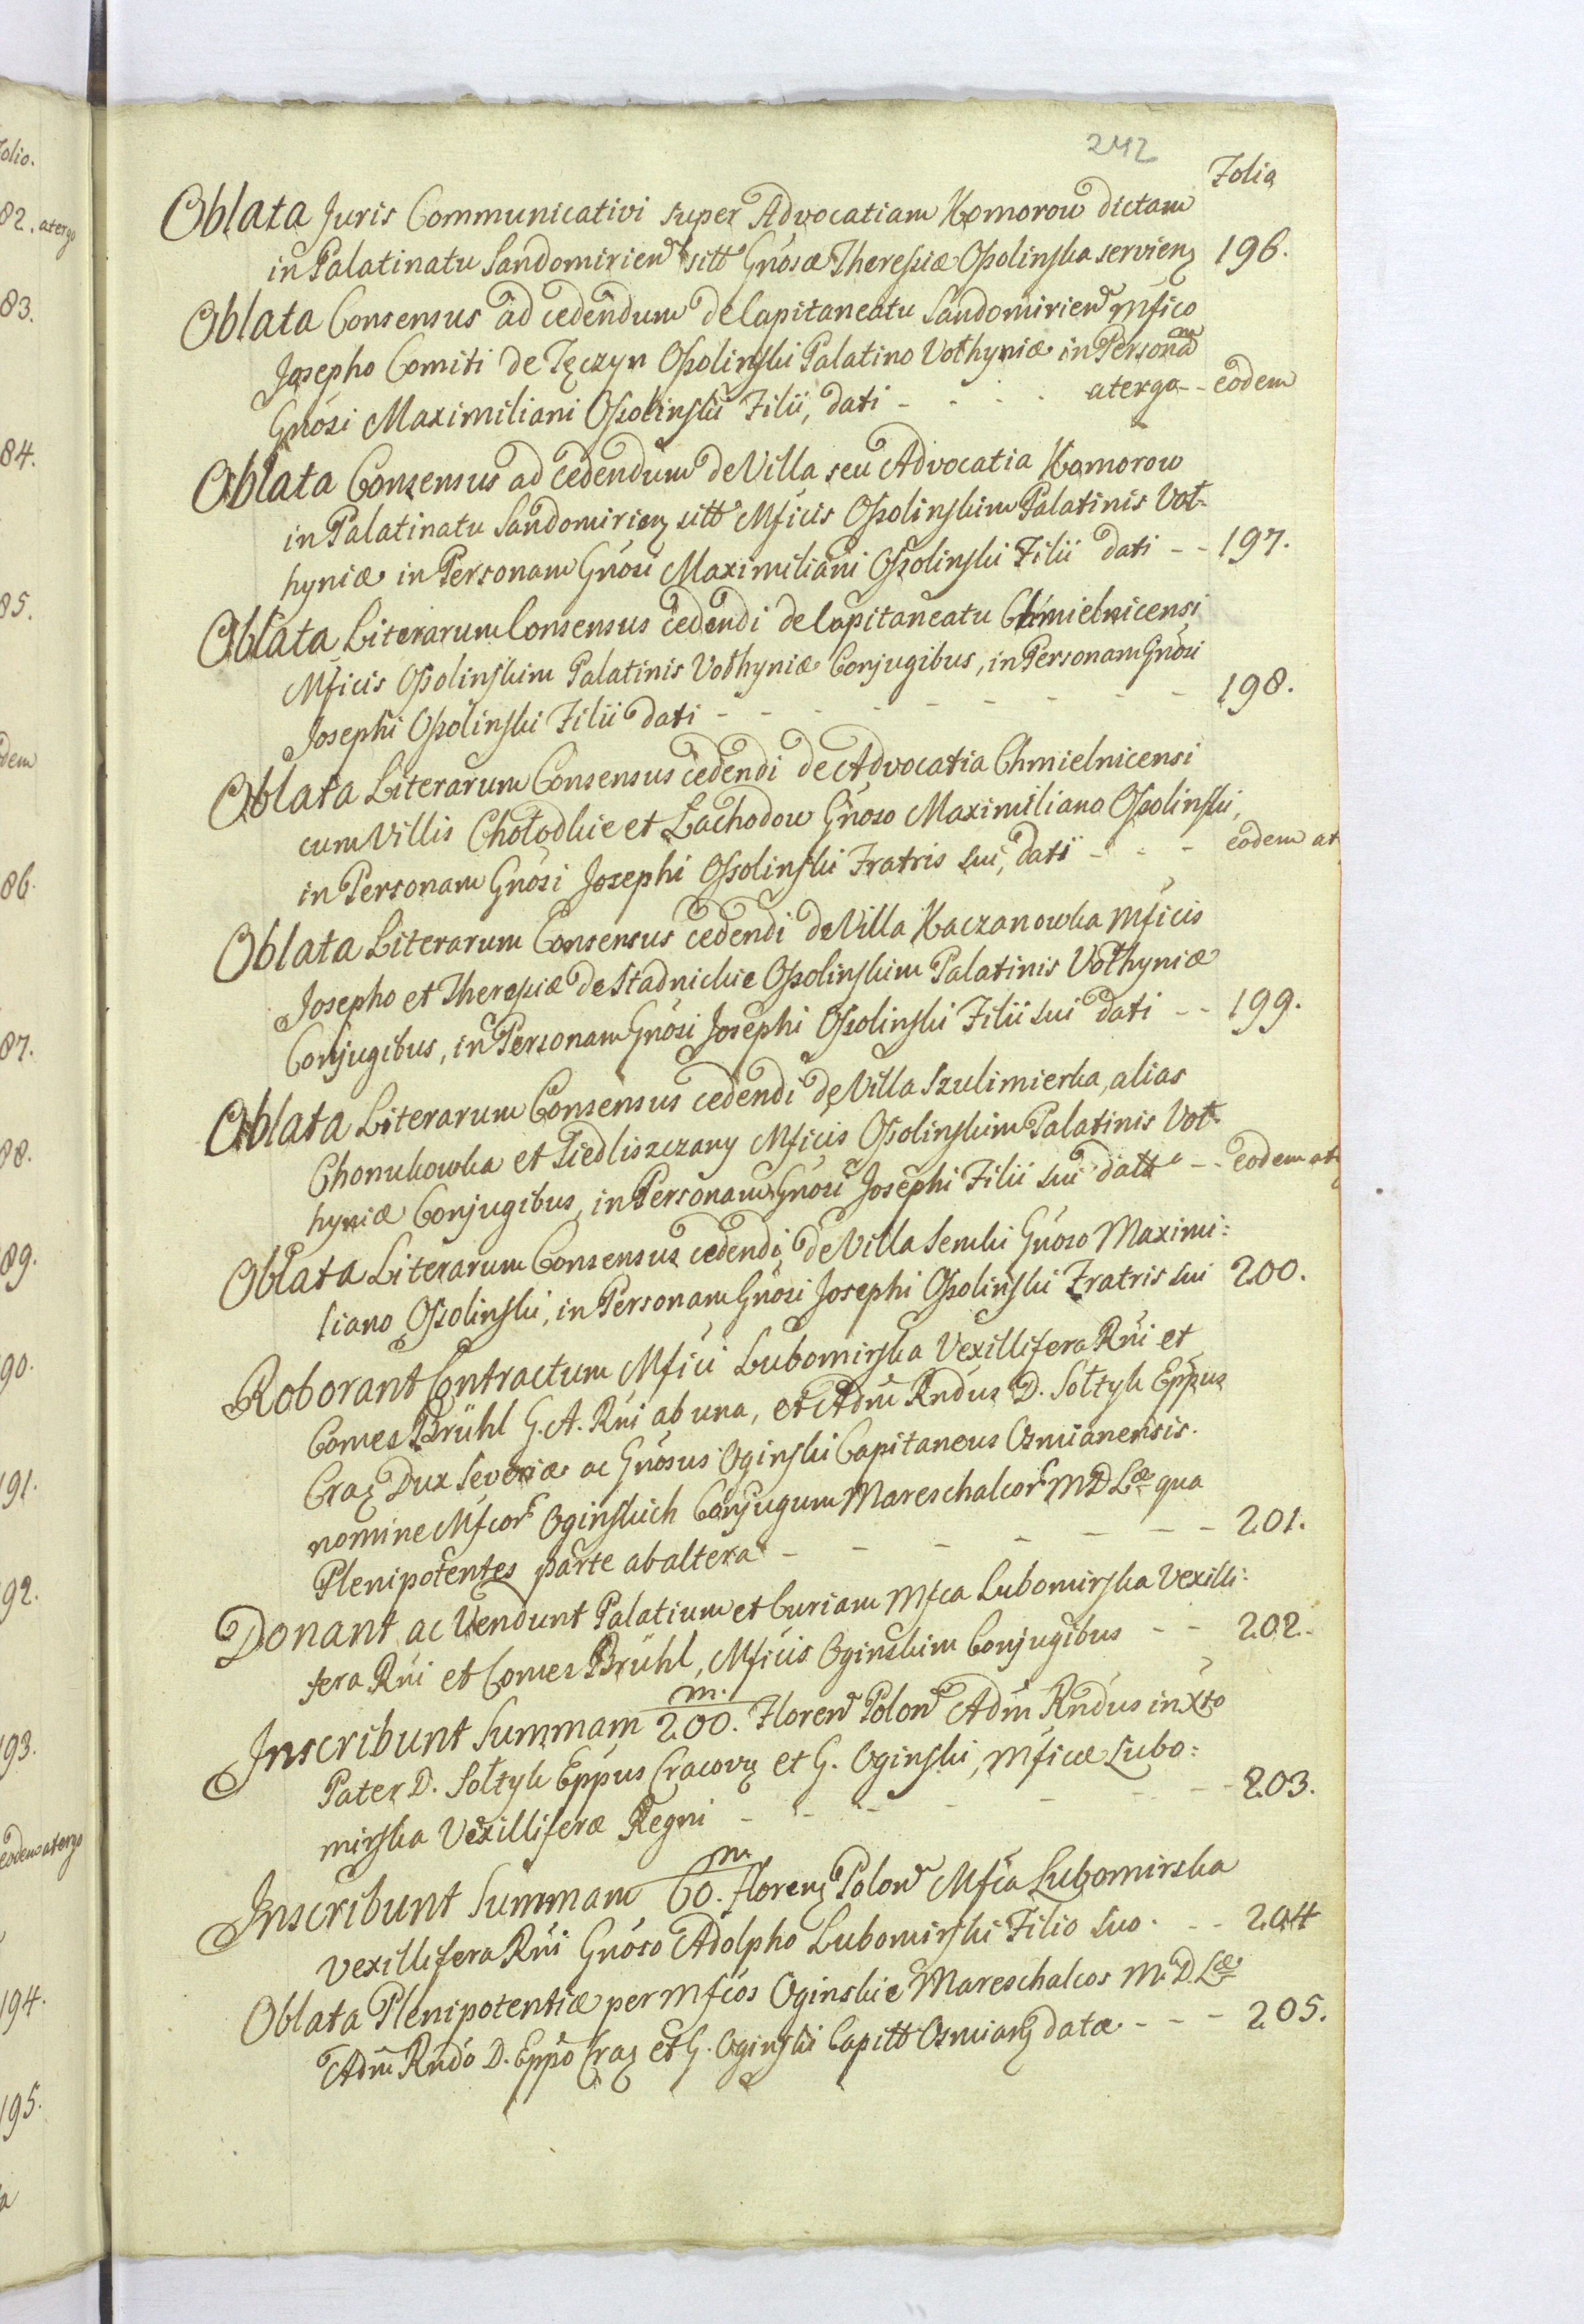 242
Folia
Oblata Juris Communicativi super Advocatiam Komorow dictam
in Palatinatu Sandomirien sitt Gnosæ Theresiæ Ossolinska serviens 196.
Oblata Consensus ad cedendum de Capitaneatu Sandomirien Mfico
Josepho Comiti de Tęczyn Ossolinski Palatino Vołhyniæ in Personam
Gnosi Maximiliani Ossolinski Filii, dati - - - - atergo - - eodem
Oblata Consensus ad cedendum de Villa seu Advocatia Komorow
in Palatinatu Sandomirien sitt Mficis Ossolinskim Palatinis Voł-
hyniæ in Personam Gnosi Maximiliani Ossolinski Filii dati - - 197.
Oblata Literarum Consensus cedendi de Capitaneatu Chmielnicensi
Mficis Ossolinskim Palatinis Vołhyniæ Conjugibus, in Personam Gnosi
Josephi Ossolinski Filii dati - - - - - - - - - 198.
Oblata Literarum Consensus cedendi de Advocatia Chmielnicensi
cum Villis Chołodkie et Lachodow Gnoso Maximiliano Ossolinski,
in Personam Gnosi Josephi Ossolinski Fratris sui, dati - - - eodem at
Oblata Literarum Consensus cedendi de Villa Kaczanowka Mficis
Josepho et Theresiæ de Stadnickie Ossolinskim Palatinis Vołhyniæ
Conjugibus, in Personam Gnosi Josephi Ossolinski Filii sui dati - - 199.
Oblata Literarum Consensus cedendi de Villa Szulimierka, alias
Chonukowka et Piedliszczany Mficis Ossolinskim Palatinis Voł-
hyniæ Conjugibus, in Personam Gnosi Josephi Filii sui datt - - eodem at
Oblata Literarum Consensus cedendi de Villa Senki Gnoso Maximi:
liano Ossolinski, in Personam Gnosi Josephi Ossolinski Fratris sui 200.
Roborant Contractum Mfici Lubomirska Vexillifera Rni et
Comes Brühl G. A. Rni ab una, et Adm Rndus D. Sołtyk Eppus
Crac Dux Severiæ ac Gnosus Oginski Capitaneus Osmianensis.
nomine Mfcor Oginskich Conjugum Mareschalcor M D Læ qua
Plenipotentes parte ab altera - - - - - - - 201.
Donant ac Vendunt Palatium et Curiam Mfca Lubomirska Vexilli:
fera Rni et Comes Brühl, Mficis Oginskim Conjugibus - - 202.
Inscribunt Summam 200.m. Floren Polon Adm Rndus in Xto
Pater D. Sołtyk Eppus Cracov et G. Oginski, Mficæ Lubo:
mirska Vexilliferæ Regni - - - - - - - - 203.
Inscribunt Summam 60.m. floren Polon Mfca Lubomirska
Vexillifera Rni Gnoso Adolpho Lubomirski Filio suo. - - 204
Oblata Plenipotentiæ per Mfcos Oginskie Mareschalcos M. D. Læ
Adm Rndo D. Eppo Crac et G. Oginski Capitt Osmian datæ - - - 205.